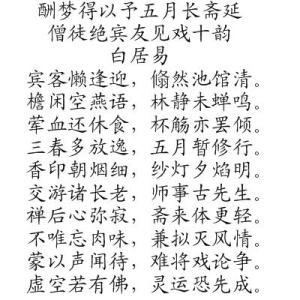 酬梦得以予五月长斋延
僧徒绝宾友见戏十韵
白居易
宾客懒逢迎，翛然池馆清。
檐闲空燕语，林静未蝉鸣。
荤血还休食，杯觞亦罢倾。
三春多放逸，五月暂修行。
香印朝烟细，纱灯夕焰明。
交游诸长老，师事古先生。
禅后心弥寂，斋来体更轻。
不唯忘肉味，兼拟灭风情。
蒙以声闻待，难将戏论争。
虚空若有佛，灵运恐先成。